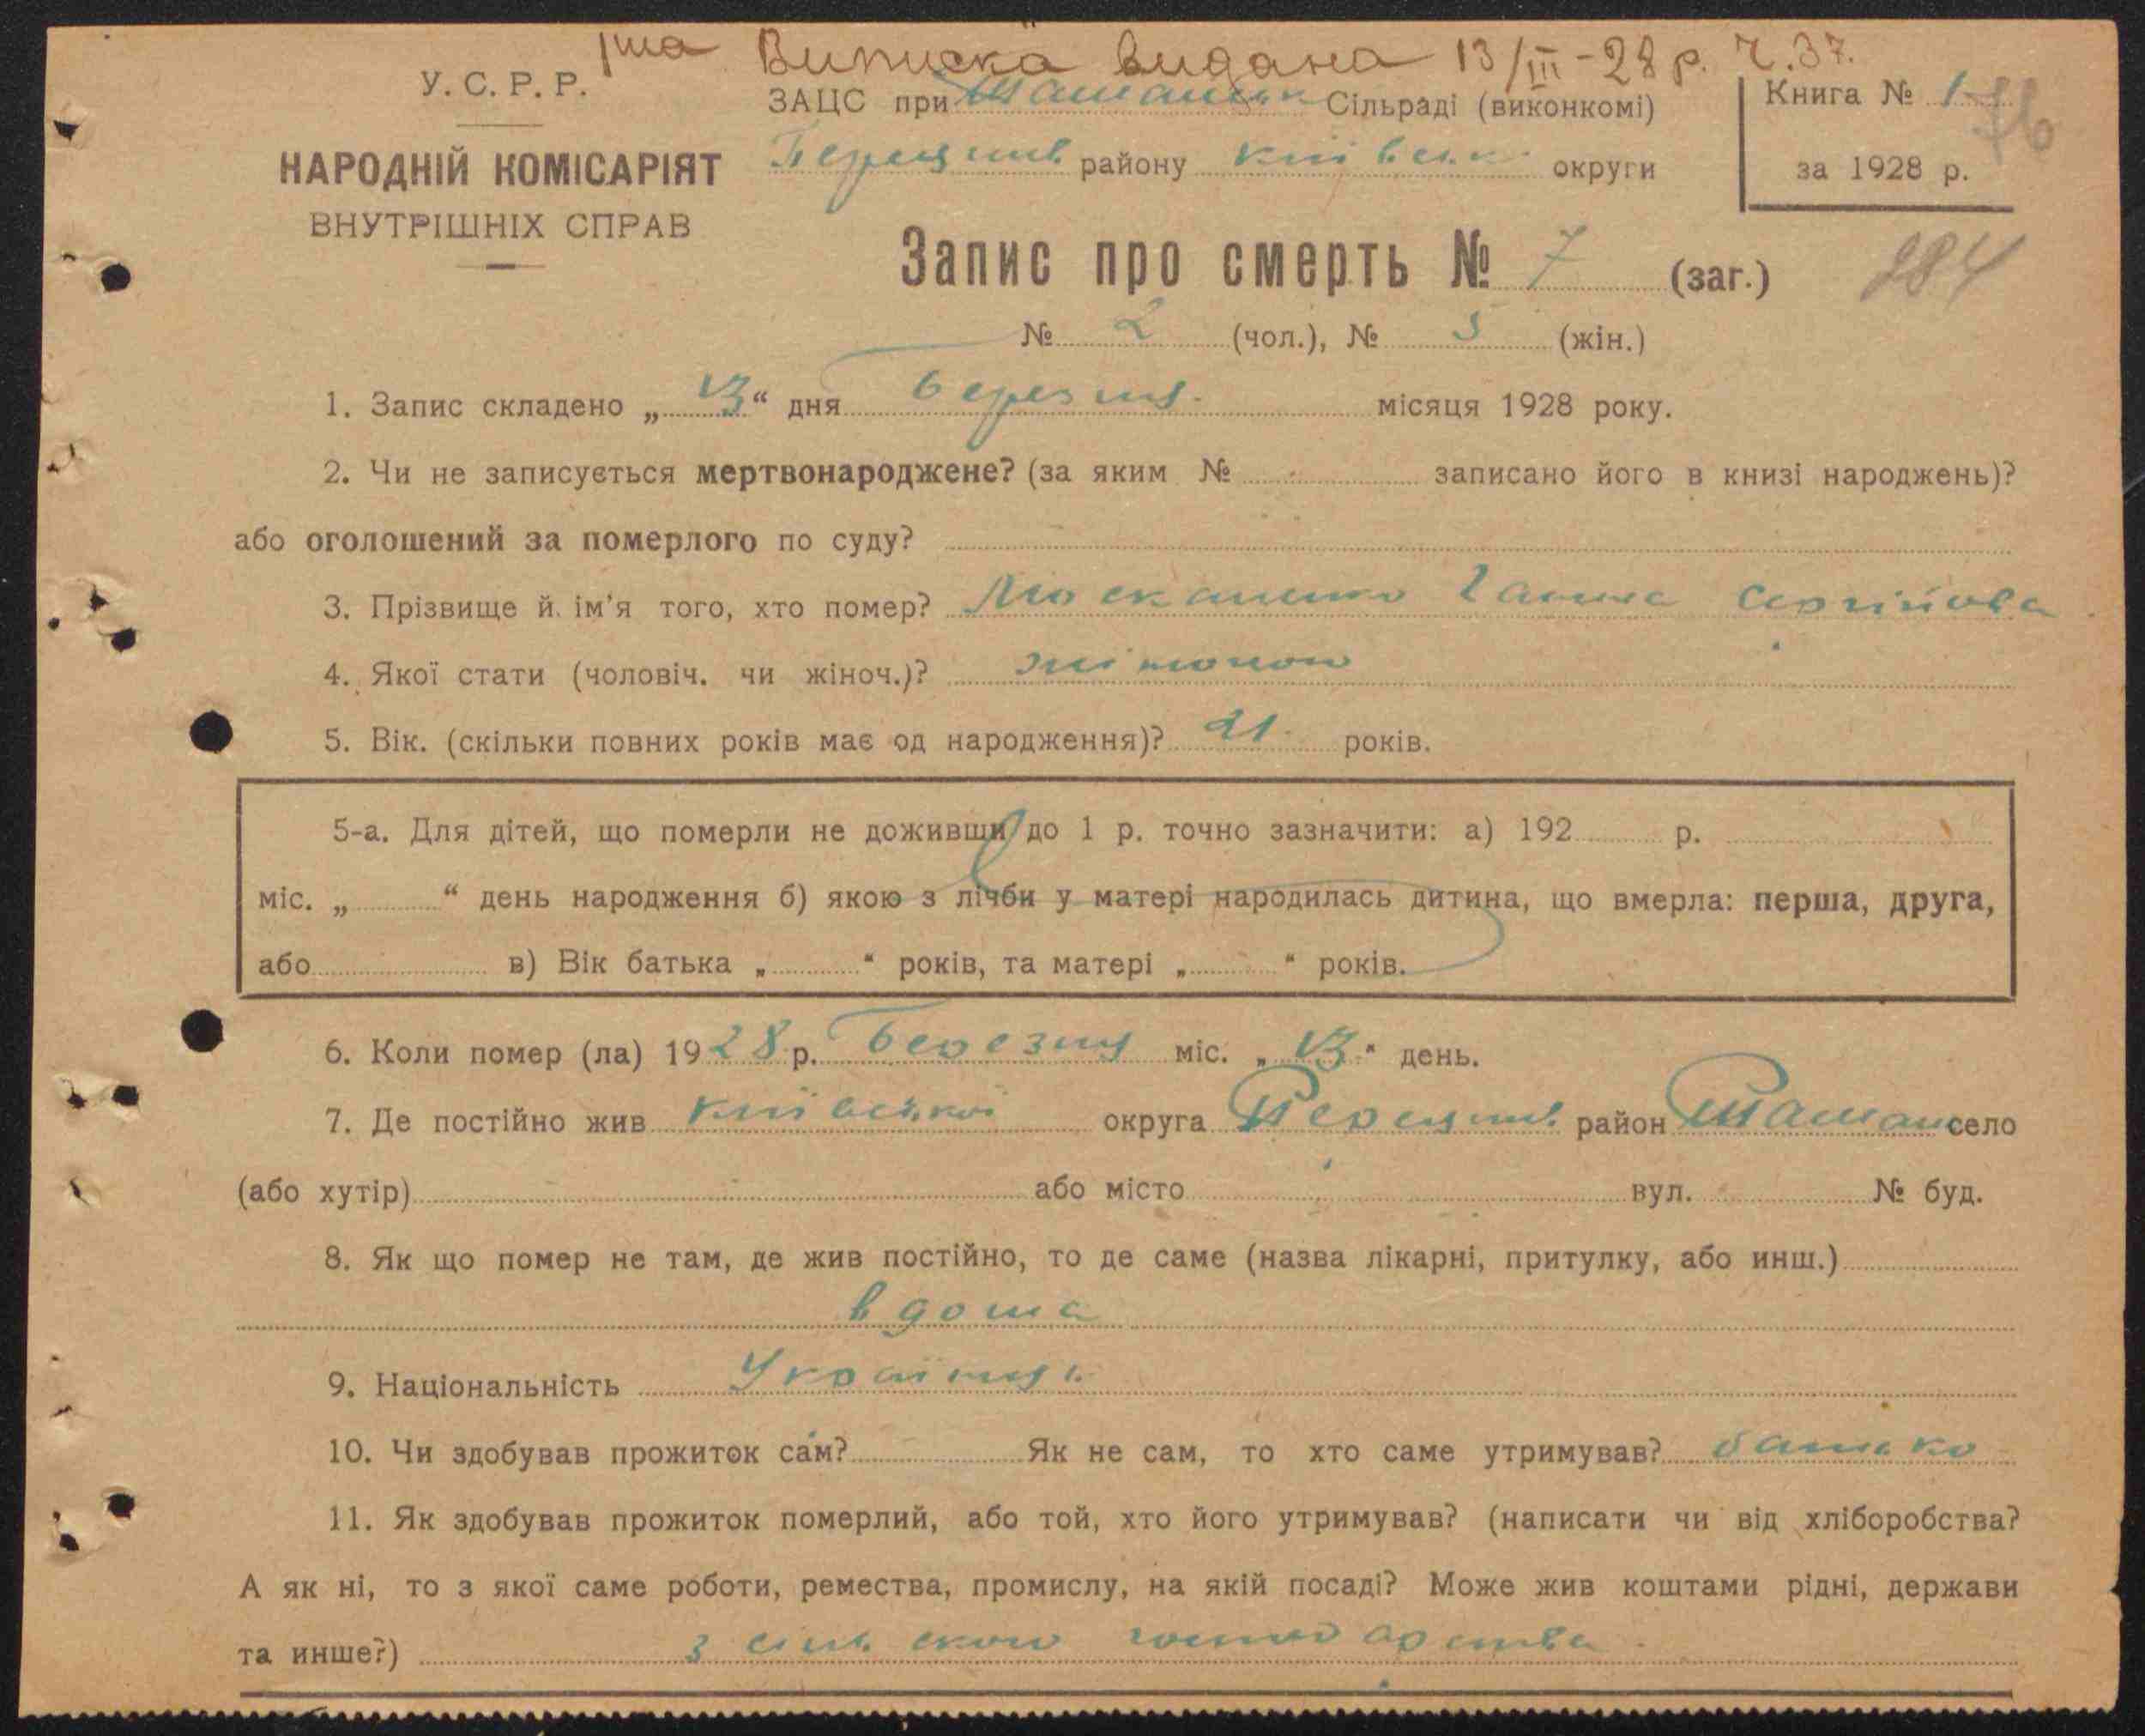 Виписка видана 13/III-28 р. Ч. 37.
У. С. Р. Р.
НАРОДНІЙ КОМІСАРІЯТ
ВНУТРІШНІХ СПРАВ
ЗАЦС при Сільраді (виконкомі)
району Київськ округи
Книга № 1
76
за 1928 р.
Запис про смерть № 7 (заг.)
284
№ 2 (чол.), № 5 (жін.)
1. Запис складено „ 13 “ дня березня місяця 1928 року.
2. Чи не записується мертвонароджене? (за яким № записано його в книзі народжень)?
або оголошений за померлого по суду?
3. Прізвище й ім'я того, хто помер? Москаленко Ганна Сергійова
4. Якої стати (чоловіч. чи жіноч.)? жіночої
5. Вік. (скільки повних років має од народження)? 21 років.
5-а. Для дітей, що померли не доживши до 1 р. точно зазначити: а) 192 р.
міс. „ “ день народження б) якою з лічби у матері народилась дитина, що вмерла: перша, друга,
або в) Вік батька „ “ років, та матері „ “ років.
6. Коли помер (ла) 1928 р. березня міс. „ 13 “ день.
7. Де постійно жив Київської округа район село
(або хутір) або місто вул. № буд.
8. Як що помер не там, де жив постійно, то де саме (назва лікарні, притулку, або инш.)
вдома
9. Національність Українць
10. Чи здобував прожиток сам? Як не сам, то хто саме утримував? батько
11. Як здобував прожиток померлий, або той, хто його утримував? (написати чи від хліборобства?
А як ні, то з якої саме роботи, ремества, промислу, на якій посаді? Може жив коштами рідні, держави
та инше?) з сільського господарства